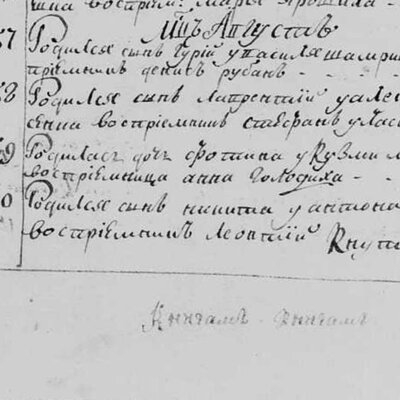 шна воспрiем: Марья Ярошиха -
Мцъ Августъ
57 Родился сынъ Гурiй у Василя шамри
прiемникъ денисъ рубанъ - - - -
58 Родился сынъ Лаврентiй у Алек
сенка воспрiемникъ стефанъ у Лас
59 Родилась дочъ Фотiина у Кузми
воспрiемница анна Голодиха -
0 Родился сынъ никита у антона
воспрiемникъ Леонтiй Кнуп